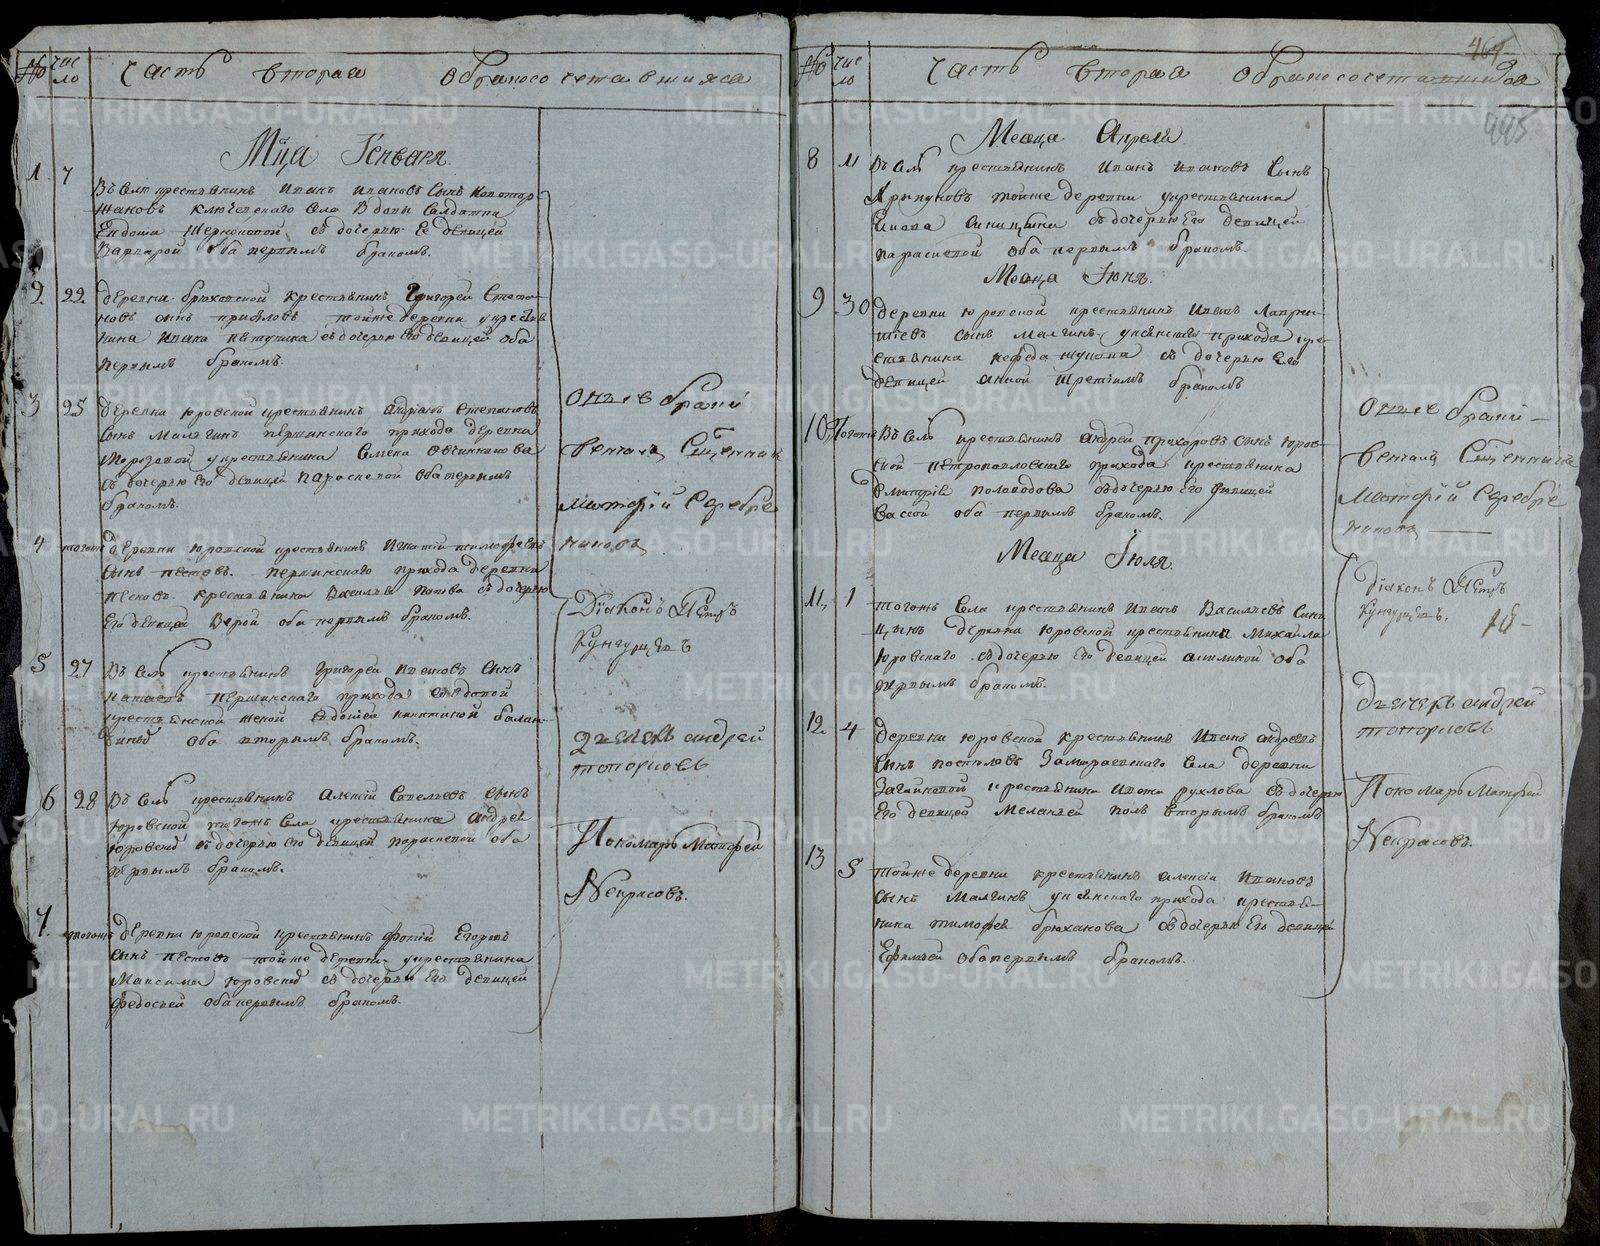 № чис
ло
Часть вторая о бракосочетавшихся
Мца Генваря
1 7
Въ селѣ крестьянинъ Иванъ Ивановъ сынъ
Ключевскаго села вдовы солдатки
Евдокіи съ дочерью Ее девицей
Варварой оба первымъ бракомъ.
2 22 деревни Брюховской крестьянинъ Григорей
новъ сынъ тойже деревни у крестья
нина Ивана Петунина съ дочерью Его девицей оба
первымъ бракомъ.
3 25 деревни Юровской крестьянинъ Андріянъ Степановъ
сынъ Малягинъ Першинскаго прихода деревни
Морозовой у крестьянина Овчинникова
съ дочерью Его девицей Параскевой оба первымъ
бракомъ.
4 тогожъ деревни Юровской крестьянинъ Игнатій Тимофеевъ
сынъ Пестовъ. Першинскаго прихода деревни
Песковъ. крестьянина Василья Попова съ дочерью
Его девицей Верой оба первымъ бракомъ.
5 27 Въ селѣ крестьянинъ Григорей Ивановъ сынъ
Першинскаго прихода съ вдовой
крестьянской женой Евдокіей Никитиной
оба вторымъ бракомъ.
6 28 Въ селѣ крестьянинъ Алексій Савельевъ сынъ
Юровской тогожъ села крестьянина Андрея
Юровскд съ дочерью Его девицей Параскевой оба
первымъ бракомъ.
7. тогожъ деревни Юровской крестьянинъ Фотій Егоровъ
сынъ Пестовъ тойже деревни у крестьянина
Максима Юровскд съ дочерью Его девицей
Федосьей оба первымъ бракомъ.
Оныѣ браки
венчалъ Сщенникъ
Матфій Серебре
никовъ
Діаконъ Петръ
Кунгурцевъ
Дьячекъ Андрей
Топорковъ
Пономарь Матфей
Некрасовъ.
№ чис
ло
Часть вторая о бракосочетавшихся
445
Месяца Апреля
8 11 Въ селѣ крестьянинъ Иванъ Ивановъ сынъ
тойже деревни у крестьянина
съ дочерью Его девицей
Параскевой оба первымъ бракомъ.
Месяца Іюня.
9 30 деревни Юровской крестьянинъ Иванъ Лаврен
тіевъ сынъ Малягинъ Уксянскаго прихода кре
стьянина съ дочерью Его
девицей Анной третіимъ бракомъ
10 Тогожъ Въ селѣ крестьянинъ Андрей Прохоровъ сынъ Юров
ской Петропавловскаго прихода крестьянина
Дмитрія Половодова съ дочерью Его девицей
Вассой оба первымъ бракомъ.
Месяца Іюля.
11. 1 тогожъ села крестьянинъ Иванъ Васильевъ Сини
цынъ деревни Юровской крестьянина Михайла
Юровскаго съ дочерью Его девицей Акилиной оба
первымъ бракомъ.
12. 4 деревни Юровской крестьянинъ Иванъ Андреевъ
сынъ Поспеловъ Замараевскаго села деревни
Зачайковой крестьянина Ивана Рухлова съ дочерью
Его девицей Меланьей полъ вторымъ бракомъ
13 5 тойже деревни крестьянинъ Алексій Ивановъ
сынъ Малягинъ Уксянскаго прихода крестья
нина Тимофея Брюханова съ дочерью Его девицей
Ефимьей оба первымъ бракомъ.
Оныѣ браки
венчалъ Сщенникъ
Матфій Серебре
никовъ
Діаконъ Петръ
Кунгурцевъ.
Дьячекъ Андрей
Топорковъ
Пономарь Матфей
Некрасовъ.
METRIKI.GASO-URAL.RU